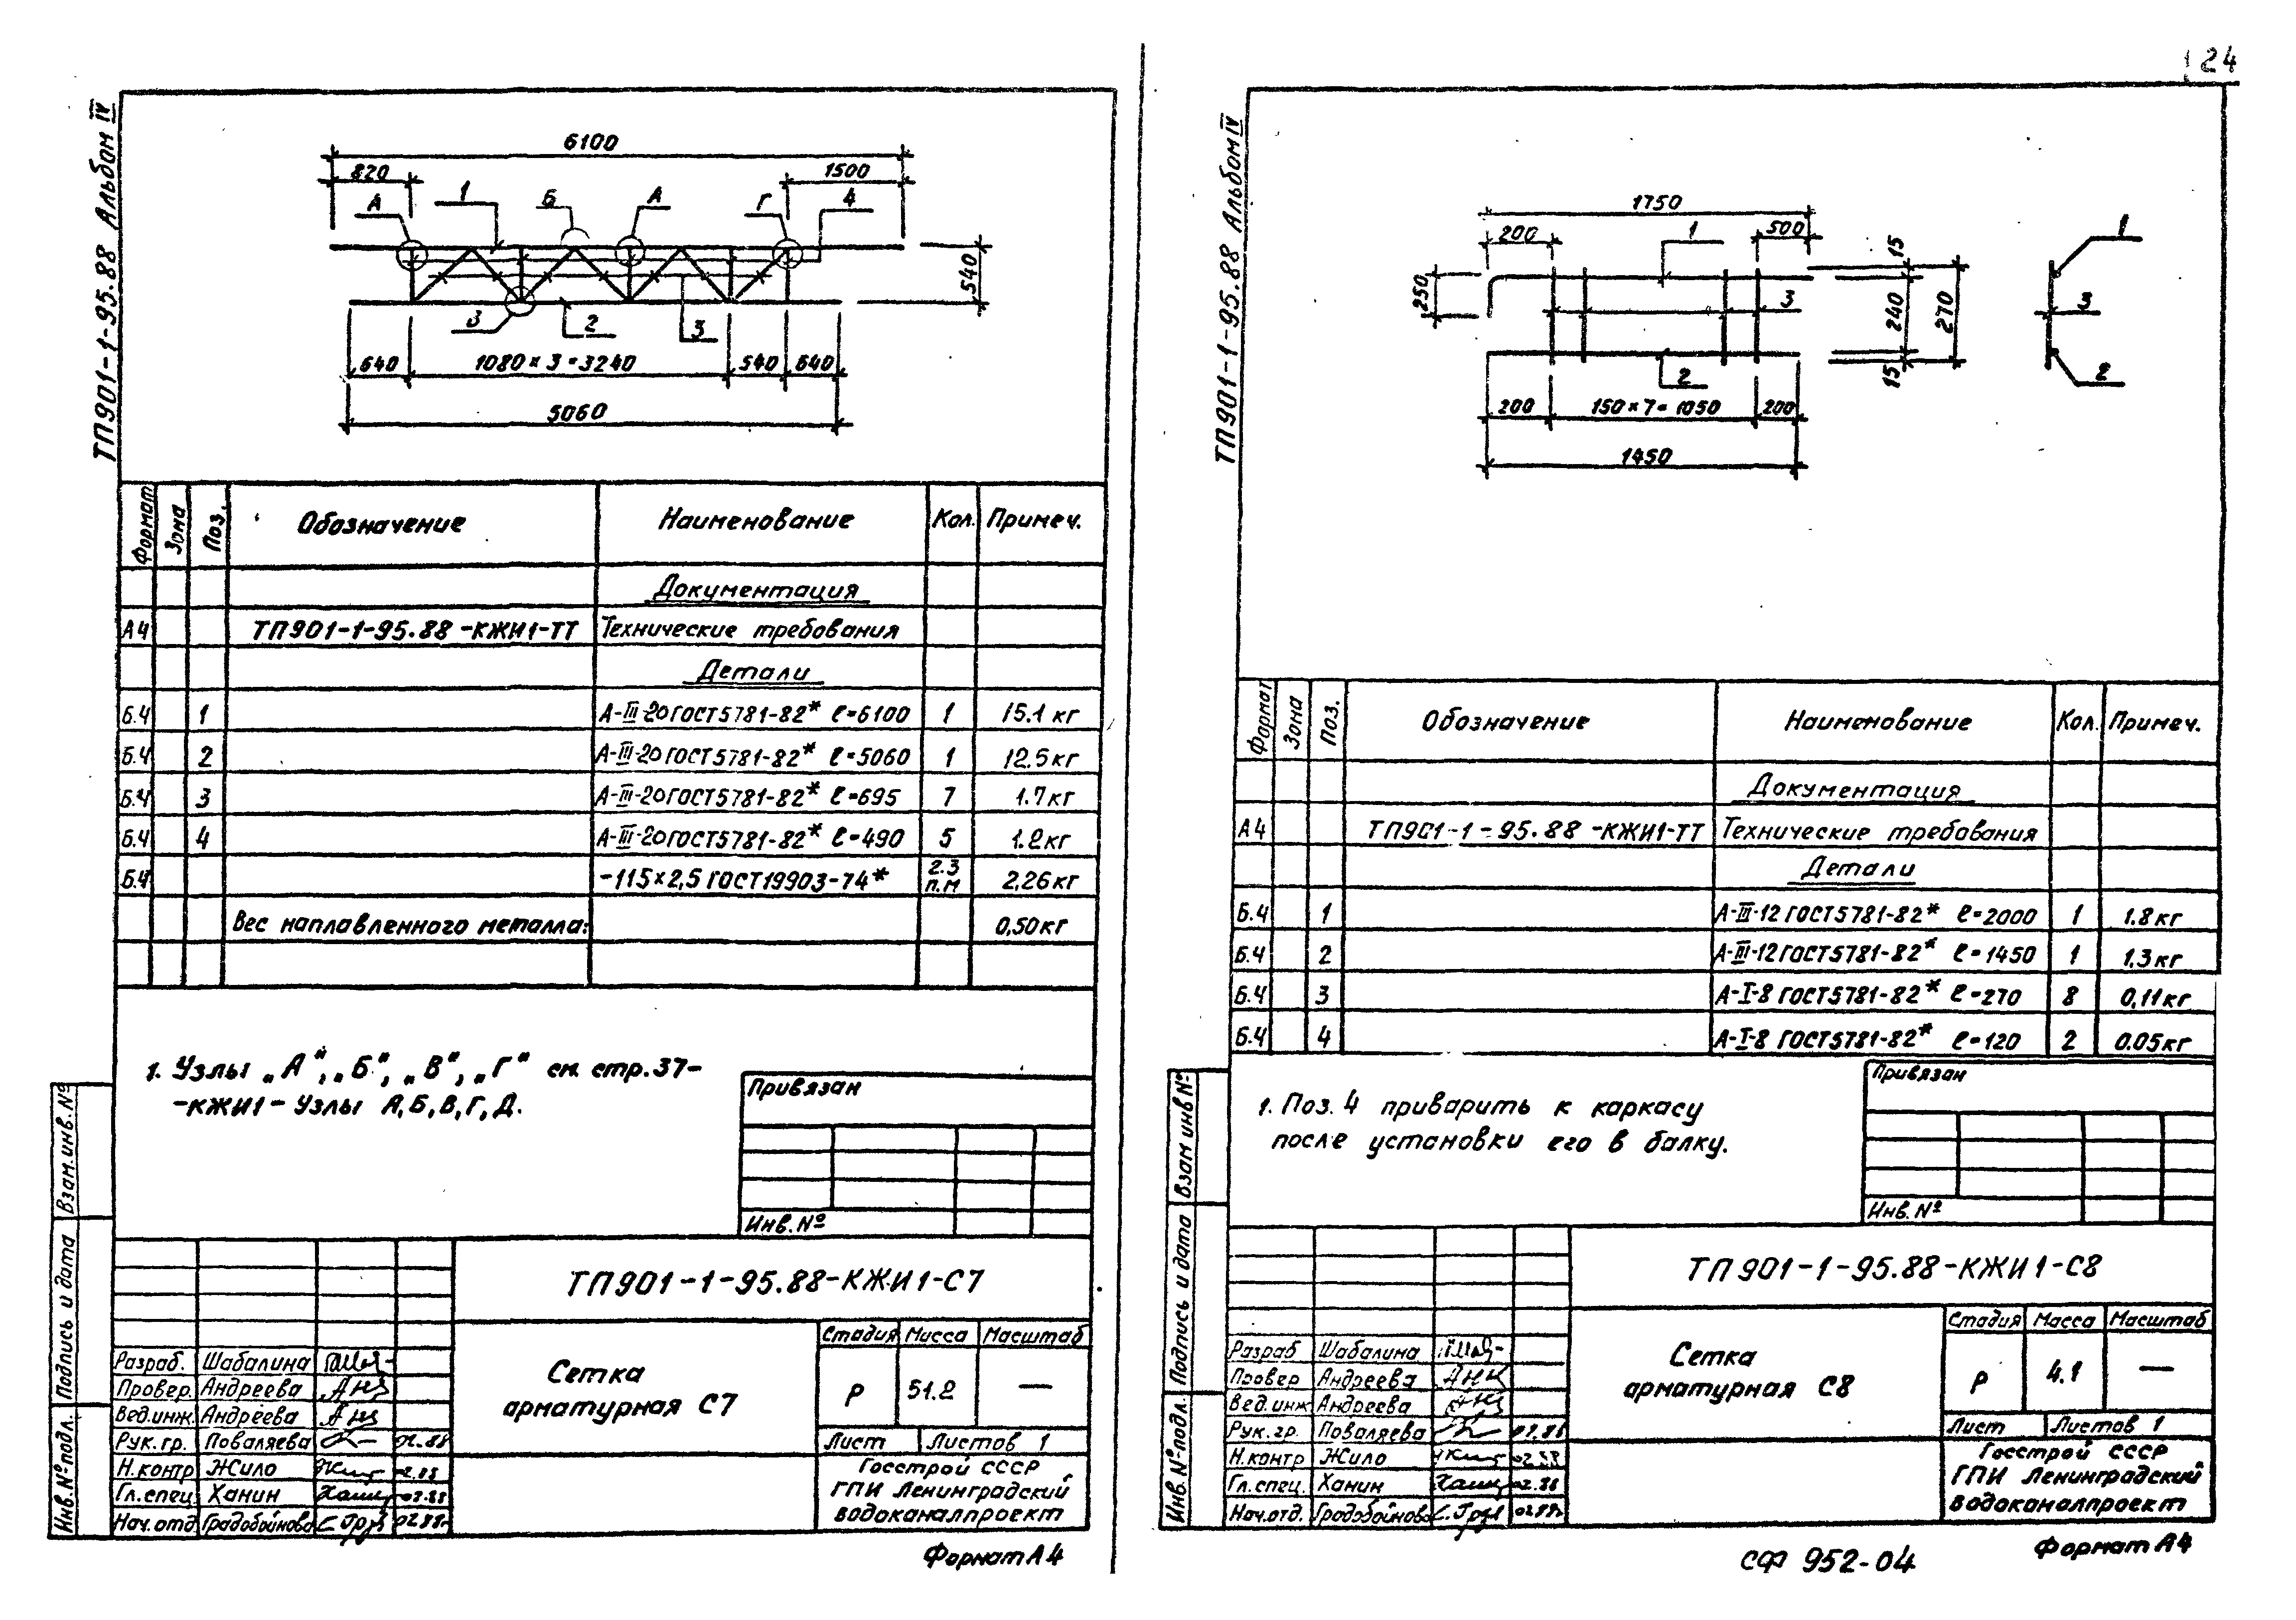 24
ТП901-1-95.88 Альбом IV
6100
820
1500
А
1
Б
А
Г
4
540
В
2
3
640
1080×3=3240
540
640
5060
Формат
Зона
Поз.
Обозначение
Наименование
Кол.
Примеч.
Документация
А4 ТП901-1-95.88-КЖИ1-ТТ Технические требования
Детали
Б.4 1 А-III-20 ГОСТ5781-82* ℓ=6100 1 15.1 кг
Б.4 2 А-III-20 ГОСТ5781-82* ℓ=5060 1 12.5 кг
Б.4 3 А-III-20 ГОСТ5781-82* ℓ=695 7 1.7 кг
Б.4 4 А-III-20 ГОСТ5781-82* ℓ=490 5 1.2 кг
Б.4 -115×2,5 ГОСТ19903-74* 2.3 п.м 2,26 кг
Вес наплавленного металла: 0,50 кг
1. Узлы „А", „Б", „В", „Г" см. стр.37-
-КЖИ1-Узлы А,Б,В,Г,Д.
Привязан
Инв.№
Взам.инв.№
Подпись и дата
Инв.№подл.
ТП901-1-95.88-КЖИ1-С7
Сетка
арматурная С7
Стадия Масса Масштаб
Р 51.2 —
Лист Листов 1
Госстрой СССР
ГПИ Ленинградский
водоканалпроект
Разраб. Шабалина
Провер. Андреева
Вед.инж. Андреева
Рук.гр. Поваляева 02.88
Н.контр Жило 02.88
Гл.спец. Ханин 02.88
Нач.отд Градобойнова 02.88г
Формат А4
ТП901-1-95.88 Альбом IV
1750
200
1
500
15
250
3
240
270
15
2
200
150×7=1050
200
1450
1
3
2
Формат
Зона
Поз.
Обозначение
Наименование
Кол.
Примеч.
Документация
А4 ТП901-1-95.88-КЖИ1-ТТ Технические требования
Детали
Б.4 1 А-III-12 ГОСТ5781-82* ℓ=2000 1 1.8 кг
Б.4 2 А-III-12 ГОСТ5781-82* ℓ=1450 1 1,3 кг
Б.4 3 А-I-8 ГОСТ5781-82* ℓ=270 8 0,11 кг
Б.4 4 А-I-8 ГОСТ5781-82* ℓ=120 2 0.05 кг
1. Поз. 4 приварить к каркасу
после установки его в балку.
Привязан
Инв.№
Взам инв №
Подпись и дата
Инв.№подл.
ТП901-1-95.88-КЖИ1-С8
Сетка
арматурная С8
Стадия Масса Масштаб
Р 4.1 —
Лист Листов 1
Госстрой СССР
ГПИ Ленинградский
водоканалпроект
Разраб Шабалина
Провер Андреева
Вед.инж Андреева
Рук.гр. Поваляева 02.88
Н.контр Жило 02.88
Гл.спец. Ханин 02.88
Нач.отд. Градобойнова 02.88г
Формат А4
СФ 952-04